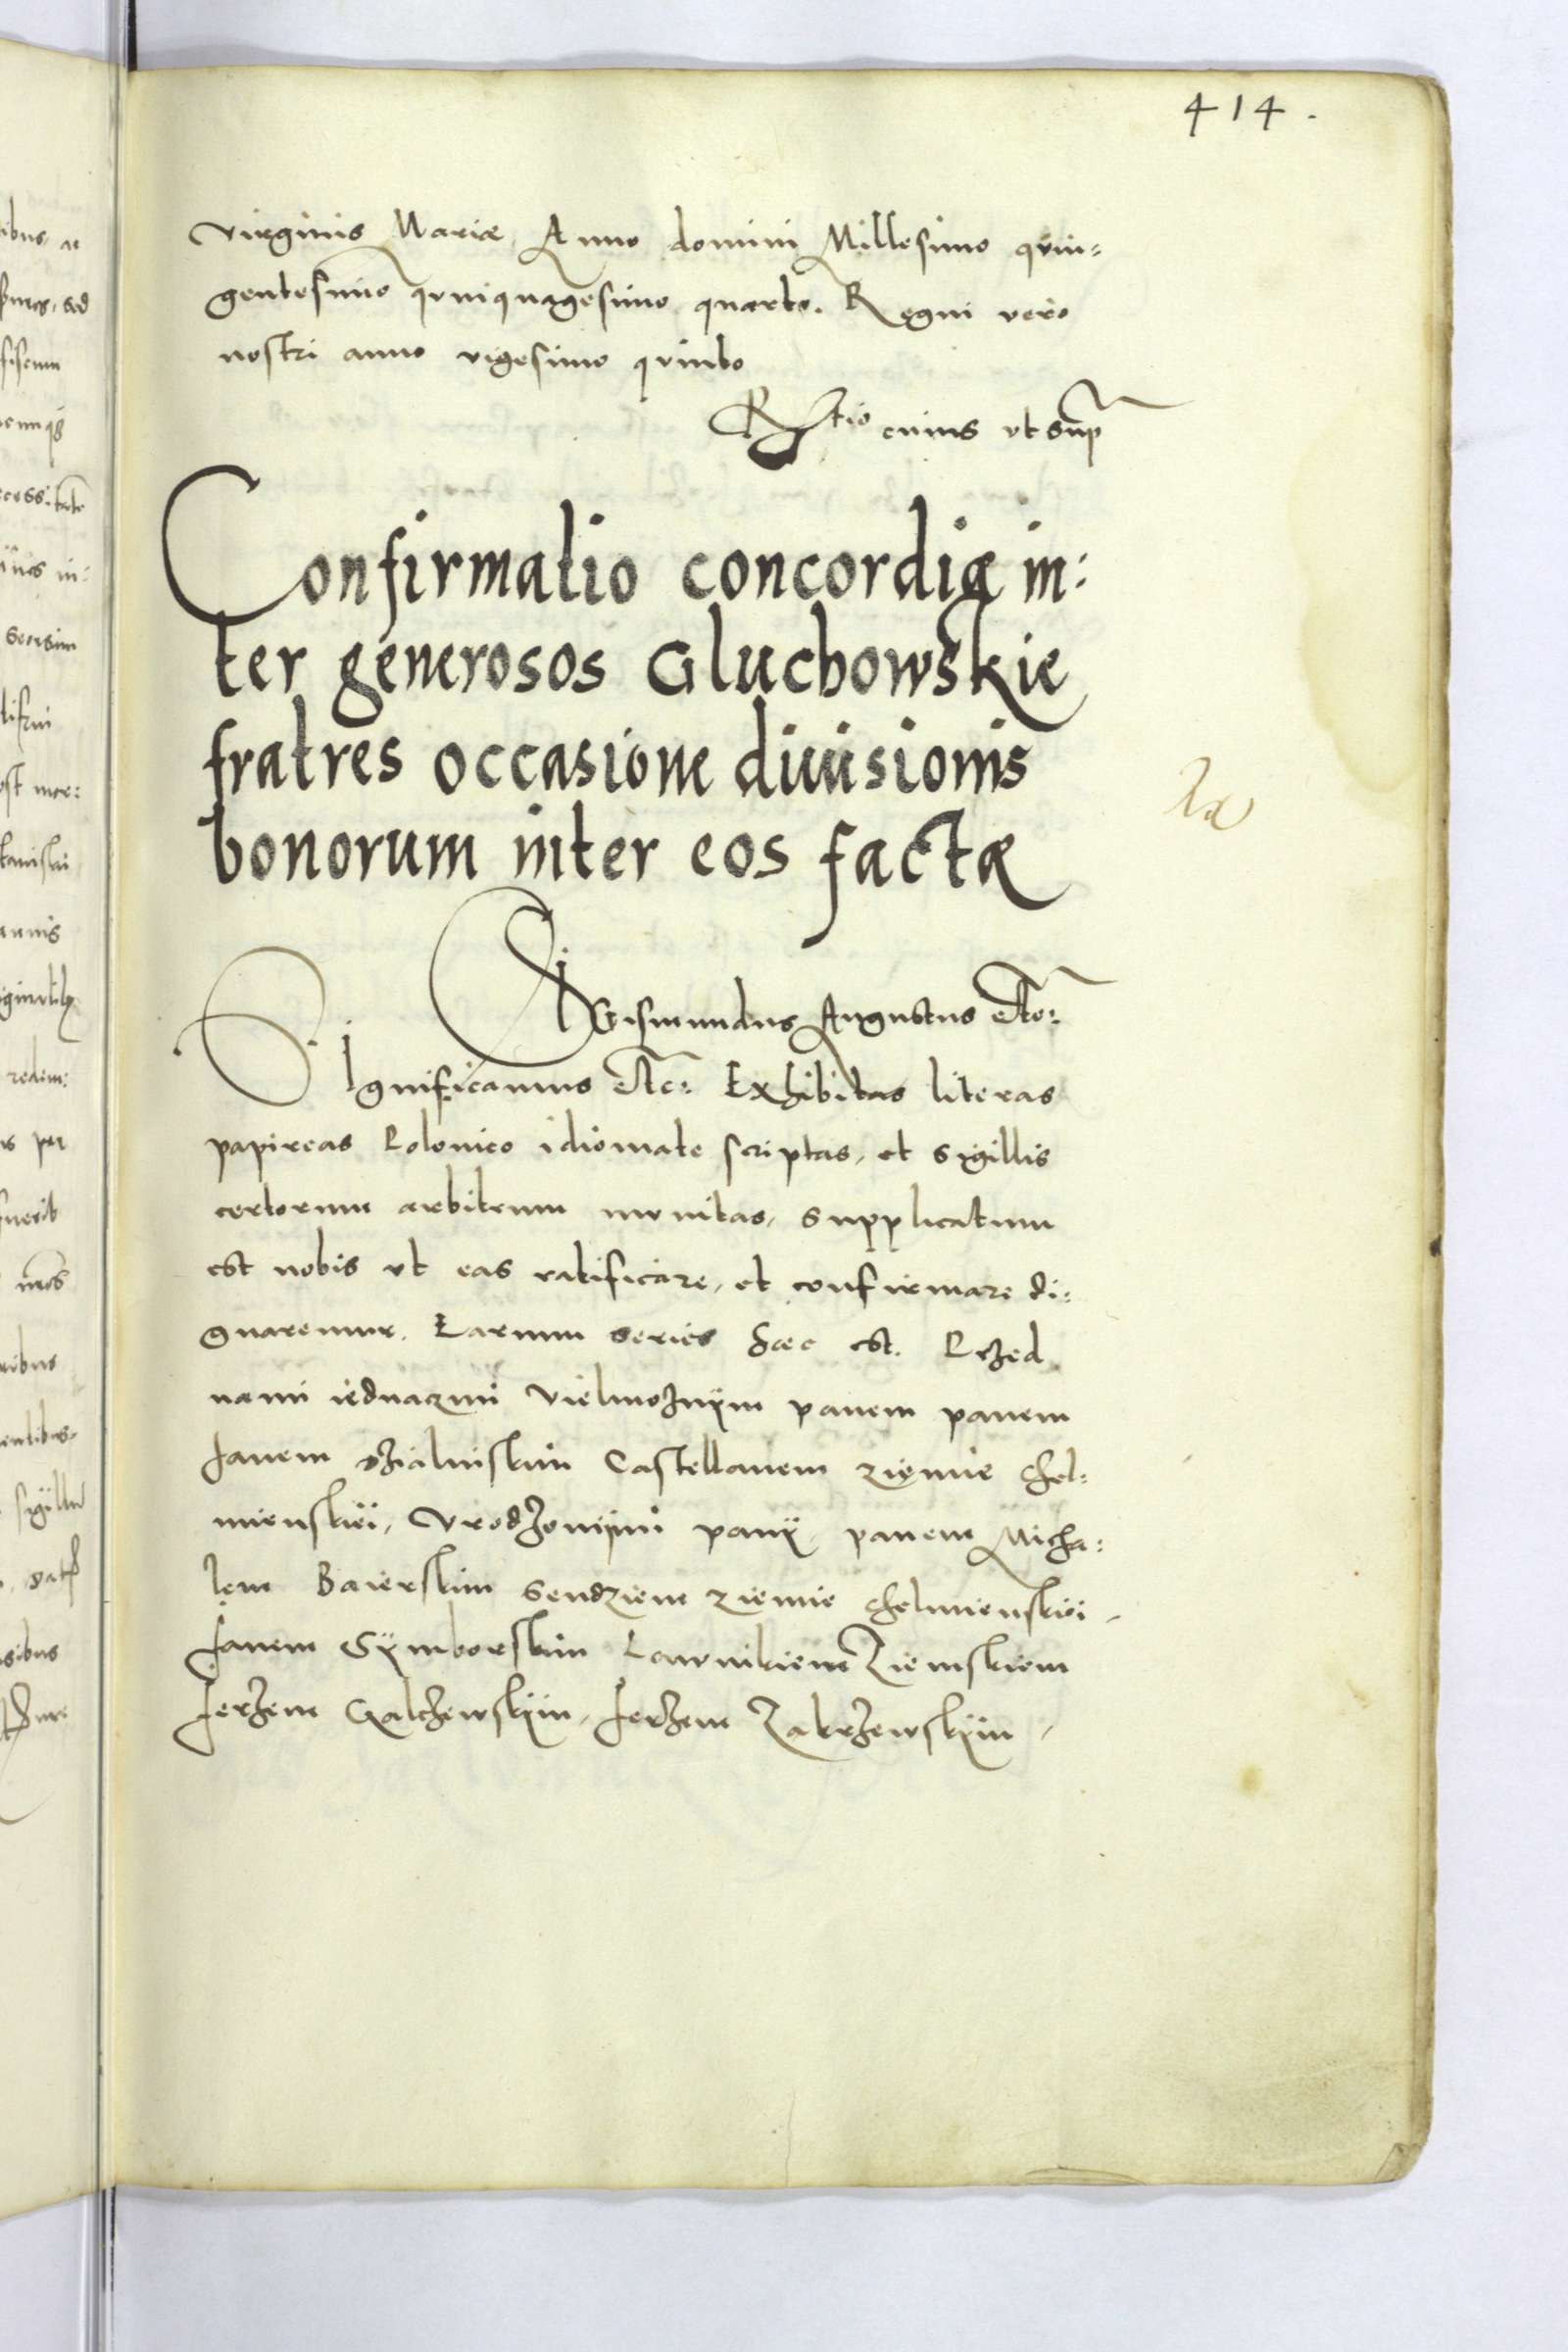 414.
virginis Mariæ Anno domini Millesimo quin=
gentesimo quinquagesimo quarto. Regni vero
nostri anno vigesimo quinto
Rtio cuius vt sup
Confirmatio concordiæ in:
ter generosos Gluchowskie
fratres occasione diuisionis
bonorum inter eos factæ
Sigismundus Augustus etc:
Significamus etc: Exhibitas literas
papireas Polonico idiomate scriptas, et sigillis
certorum arbitrum munitas, supplicatum
est nobis vt eas ratificare, et confirmare di:
gnaremur. Earum series hæc est. Przed
nami iednaczmi Vielmożnÿm panem panem
Janem Dzialinskim Castellanem ziemie chel:
mienskiei, Vrodzonijmi panÿ panem Micha:
lem Baierskim sendziem ziemie chelmienskiei,
Janem Sÿmborskim Lawnikiem Ziemskiem
Jerzem Galczewskÿm, Jerzem Zakrzewskÿm,